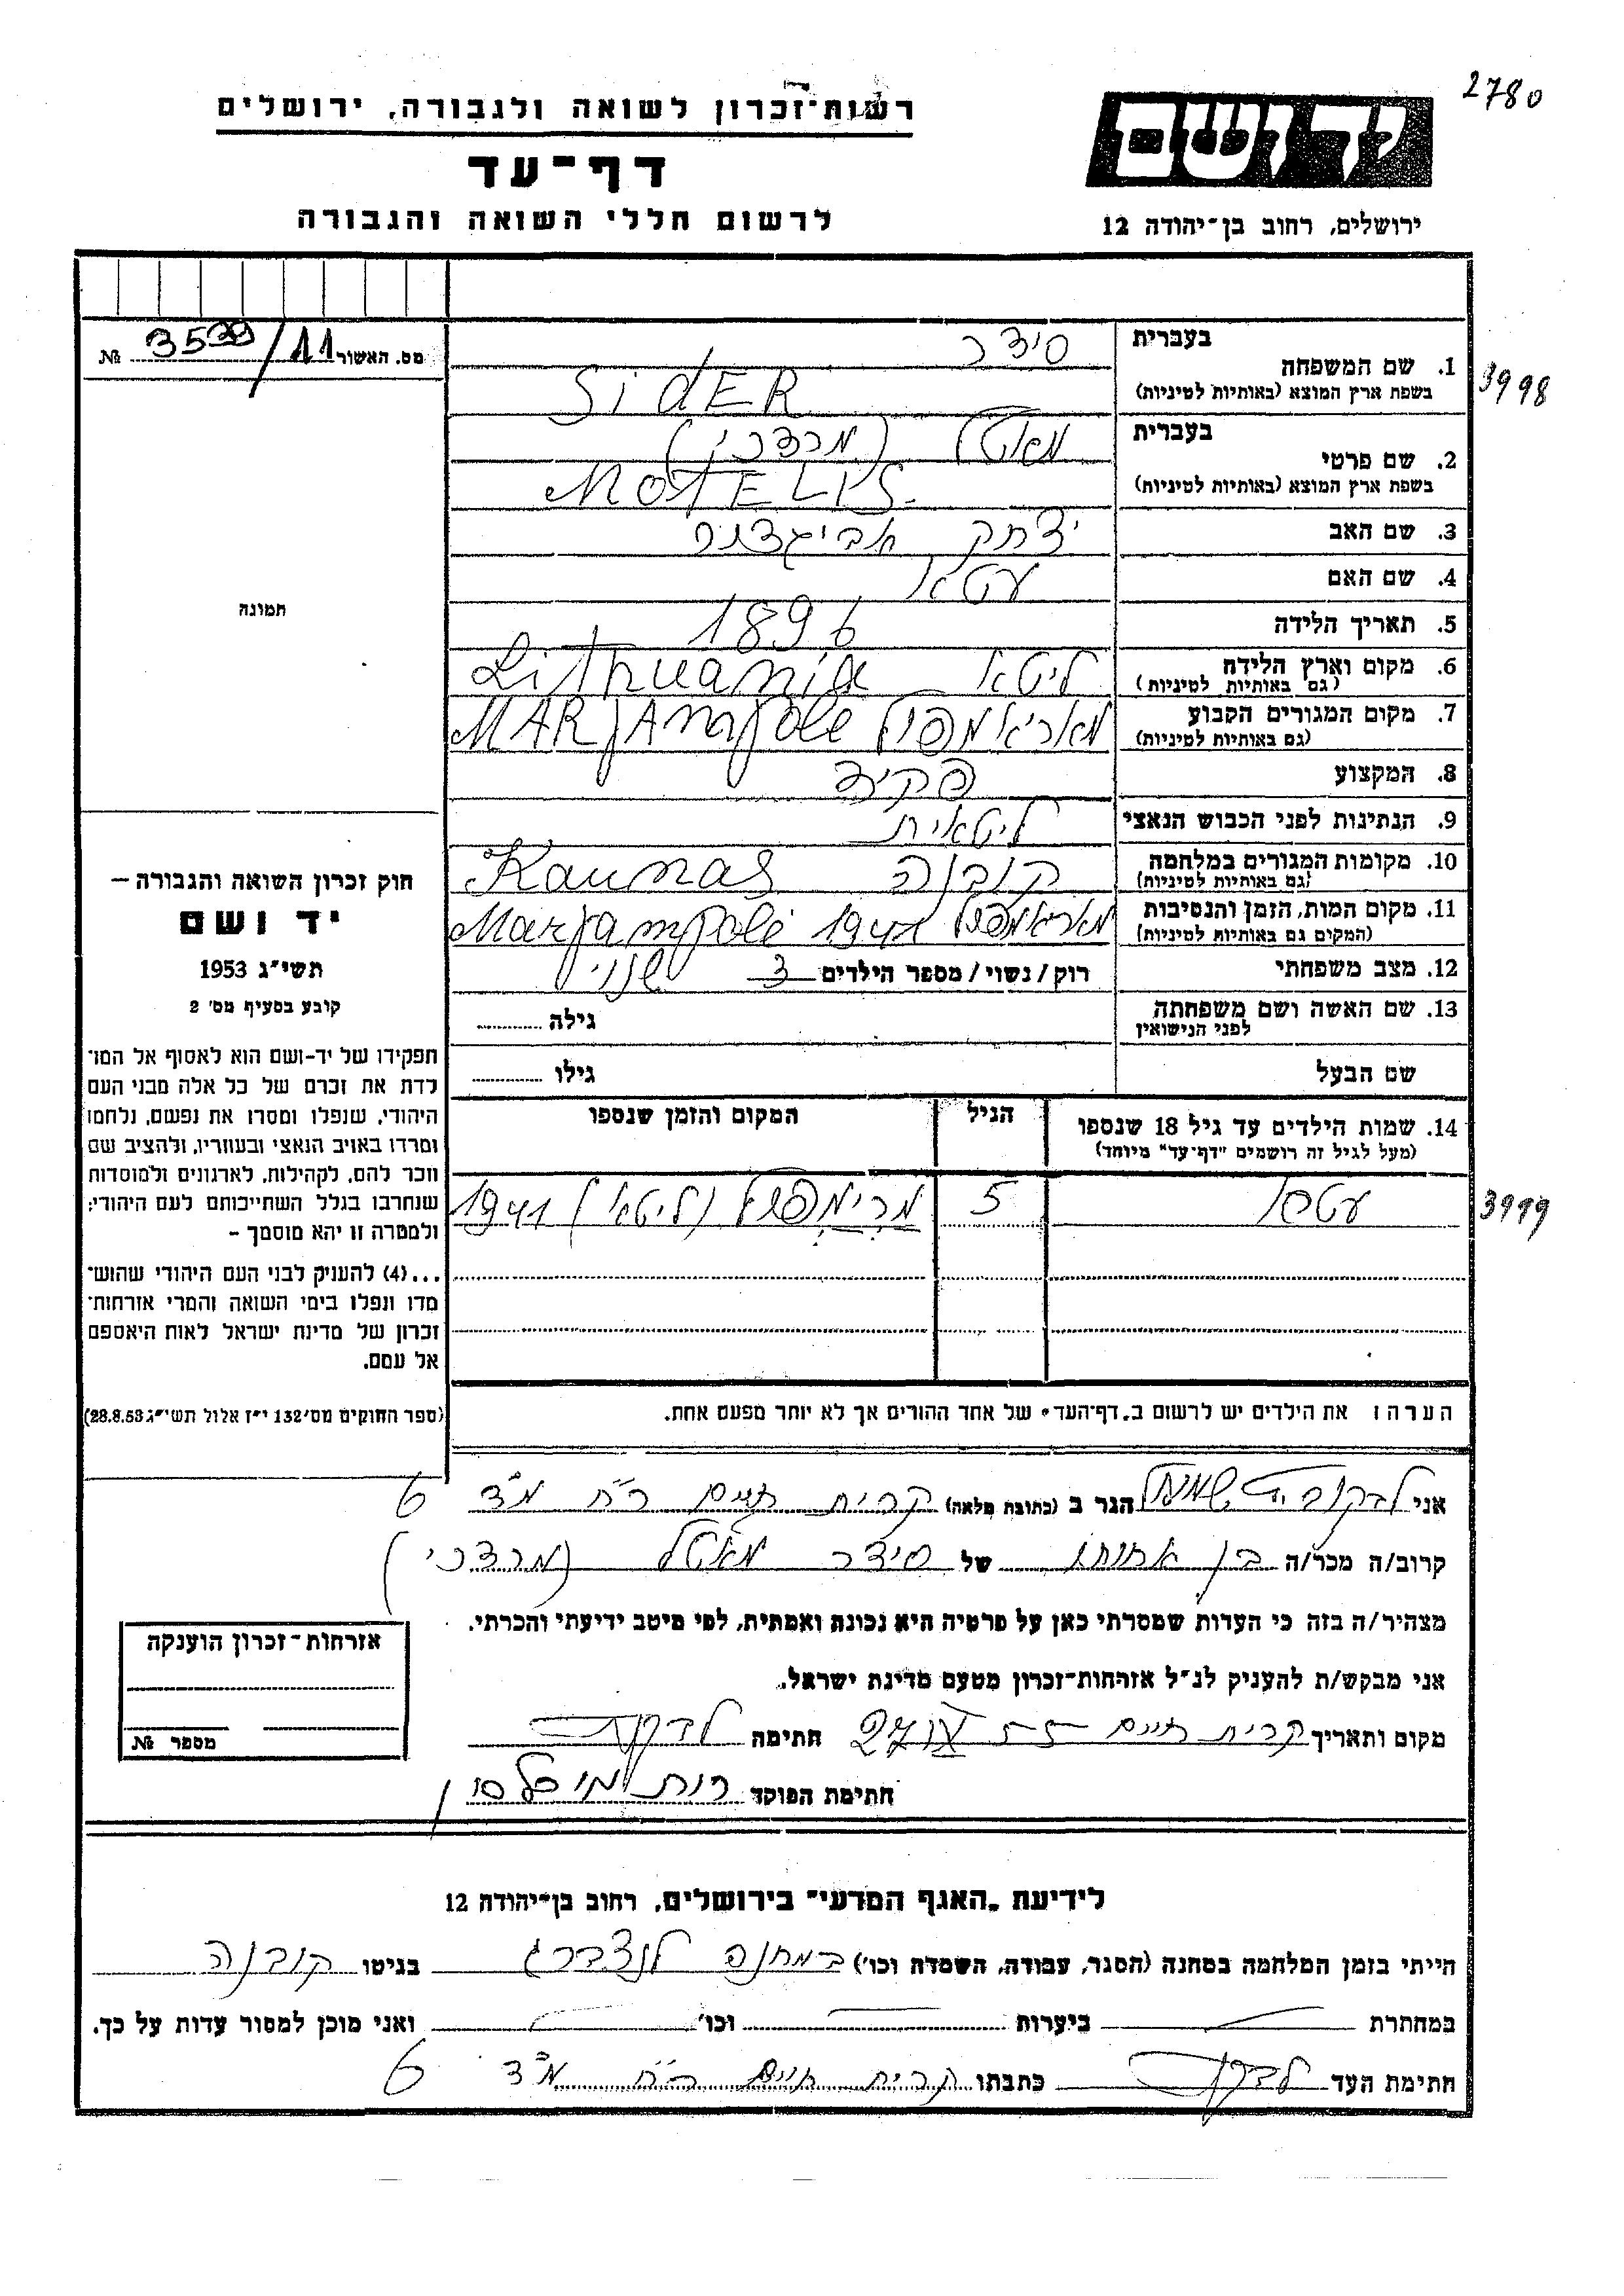 2780
רשות-זכרון לשואה ולגבורה, ירושלים
דף-עד
לרשום חללי השואה והגבורה
יד ושם
ירושלים, רחוב בן-יהודה 12
מס. האשור 3539/11 №
תמונה
בעברית סידר
1. שם המשפחה
בשפת ארץ המוצא (באותיות לטיניות) SidER
3998
בעברית מאטל (מרדכי)
2. שם פרטי
בשפת ארץ המוצא (באותיות לטיניות) MOTELIS.
3. שם האב יצחק אביגדור
4. שם האם עטא
5. תאריך הלידה 1896
6. מקום וארץ הלידה ליטא Lithuania
(גם באותיות לטיניות)
7. מקום המגורים הקבוע מאריאמפול MARJAmpole
(גם באותיות לטיניות)
8. המקצוע פקיד
9. הנתינות לפני הכבוש הנאצי ליטאית
10. מקומות המגורים במלחמה קובנה Kaunas
(גם באותיות לטיניות)
11. מקום המות, הזמן והנסיבות מאריאמפול 1941 Marjampolė
(המקום גם באותיות לטיניות)
12. מצב משפחתי רוק/נשוי/מספר הילדים 3
13. שם האשה ושם משפחתה גילה
לפני הנישואין
שם הבעל גילו
14. שמות הילדים עד גיל 18 שנספו הגיל המקום והזמן שנספו
(מעל לגיל זה רושמים "דף-עד" מיוחד)
5 מרימפול (ליטא) 1941
3999
הערה: את הילדים יש לרשום ב"דף-העד" של אחד ההורים אך לא יותר מפעם אחת.
חוק זכרון השואה והגבורה –
יד ושם
תשי"ג 1953
קובע בסעיף מס' 2
תפקידו של יד-ושם הוא לאסוף אל המו-
לדת את זכרם של כל אלה מבני העם
היהודי, שנפלו ומסרו את נפשם, נלחמו
ומרדו באויב הנאצי ובעוזריו, ולהציב שם
וזכר להם, לקהילות, לארגונים ולמוסדות
שנחרבו בגלל השתייכותם לעם היהודי;
ולמטרה זו יהא מוסמך –
...(4) להעניק לבני העם היהודי שהוש-
מדו ונפלו בימי השואה והמרי אזרחות-
זכרון של מדינת ישראל לאות היאספם
אל עמם.
(ספר החוקים מס' 132 י"ז אלול תשי"ג 28.8.53)
אני הגר ב (כתובת מלאה) קרית חיים רח מ"ד 6
קרוב/ה מכר/ה בן אחותו של סידר מאטל (מרדכי)
מצהיר/ה בזה כי העדות שמסרתי כאן על פרטיה היא נכונה ואמתית, לפי מיטב ידיעתי והכרתי.
אני מבקש/ת להעניק לנ"ל אזרחות-זכרון מטעם מדינת ישראל.
מקום ותאריך קרית חיים חתימה
חתימת הפוקד רות
אזרחות-זכרון הוענקה
מספר №
לידיעת "האגף המדעי" בירושלים, רחוב בן-יהודה 12
הייתי בזמן המלחמה במחנה (הסגר, עבודה, השמדה וכו') במחנה לנצברג בגיטו קובנה
במחתרת ביערות וכו' ואני מוכן למסור עדות על כך.
חתימת העד כתבתו קרית חיים רח מ"ד 6